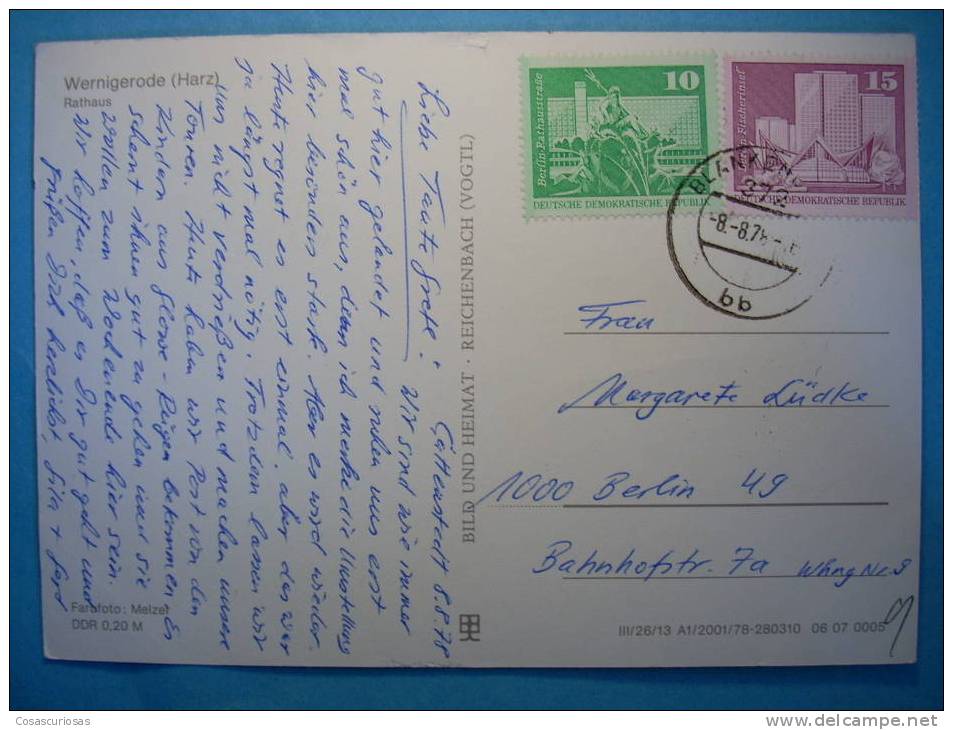 Wernigerode (Harz)
Rathaus
Cattenstedt 8.8.78
Liebe Tante Gretl!
Wir sind wie immer
gut hier gelandet und ruhen uns erst
mal schön aus, denn ich merke die Umstellung
hier besonders stark. Aber es wird wieder.
Heute regnet es erst einmal, aber das war
ja längst mal nötig. Trotzdem lassen wir
uns nicht verdrießen und machen unsere
Touren. Heute haben wir Post von den
Kindern aus Glowe-Rügen bekommen. Es
scheint ihnen gut zu gehen und sie
wollen zum Wochenende hier sein.
Wir hoffen, daß es Dir gut geht und
grüßen Dich herzlichst,
Farbfoto: Melzer
DDR 0,20 M
BILD UND HEIMAT · REICHENBACH (VOGTL)
10
Berlin-Rathausstraße
DEUTSCHE DEMOKRATISCHE REPUBLIK
15
Fischerinsel
DEUTSCHE DEMOKRATISCHE REPUBLIK
BLANKENB
372
-8.-8.78
bb
Frau
Margarete Lüdke
1000 Berlin 49
Bahnhofstr. 7a Whng Nr. 9
III/26/13 A1/2001/78-280310 06 07 0005
Cosascuriosas
www.delcampe.net